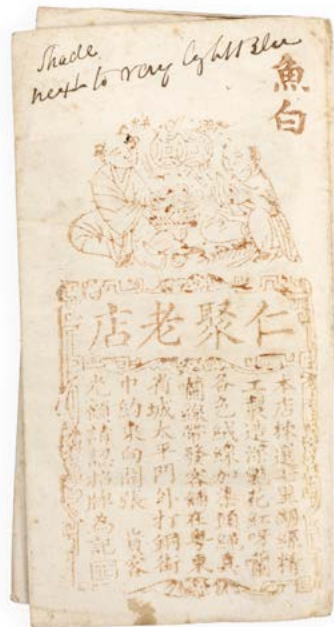 Shade
next to very light Blue
魚白
仁聚老店
本店揀選七里湖經
工製造洋花紅呀蘭
各色絨線加重頂真
蘭帶發客鋪在粵東
省城太平門外打銅街
中約東向開張 貴客
光顧請認招牌為記